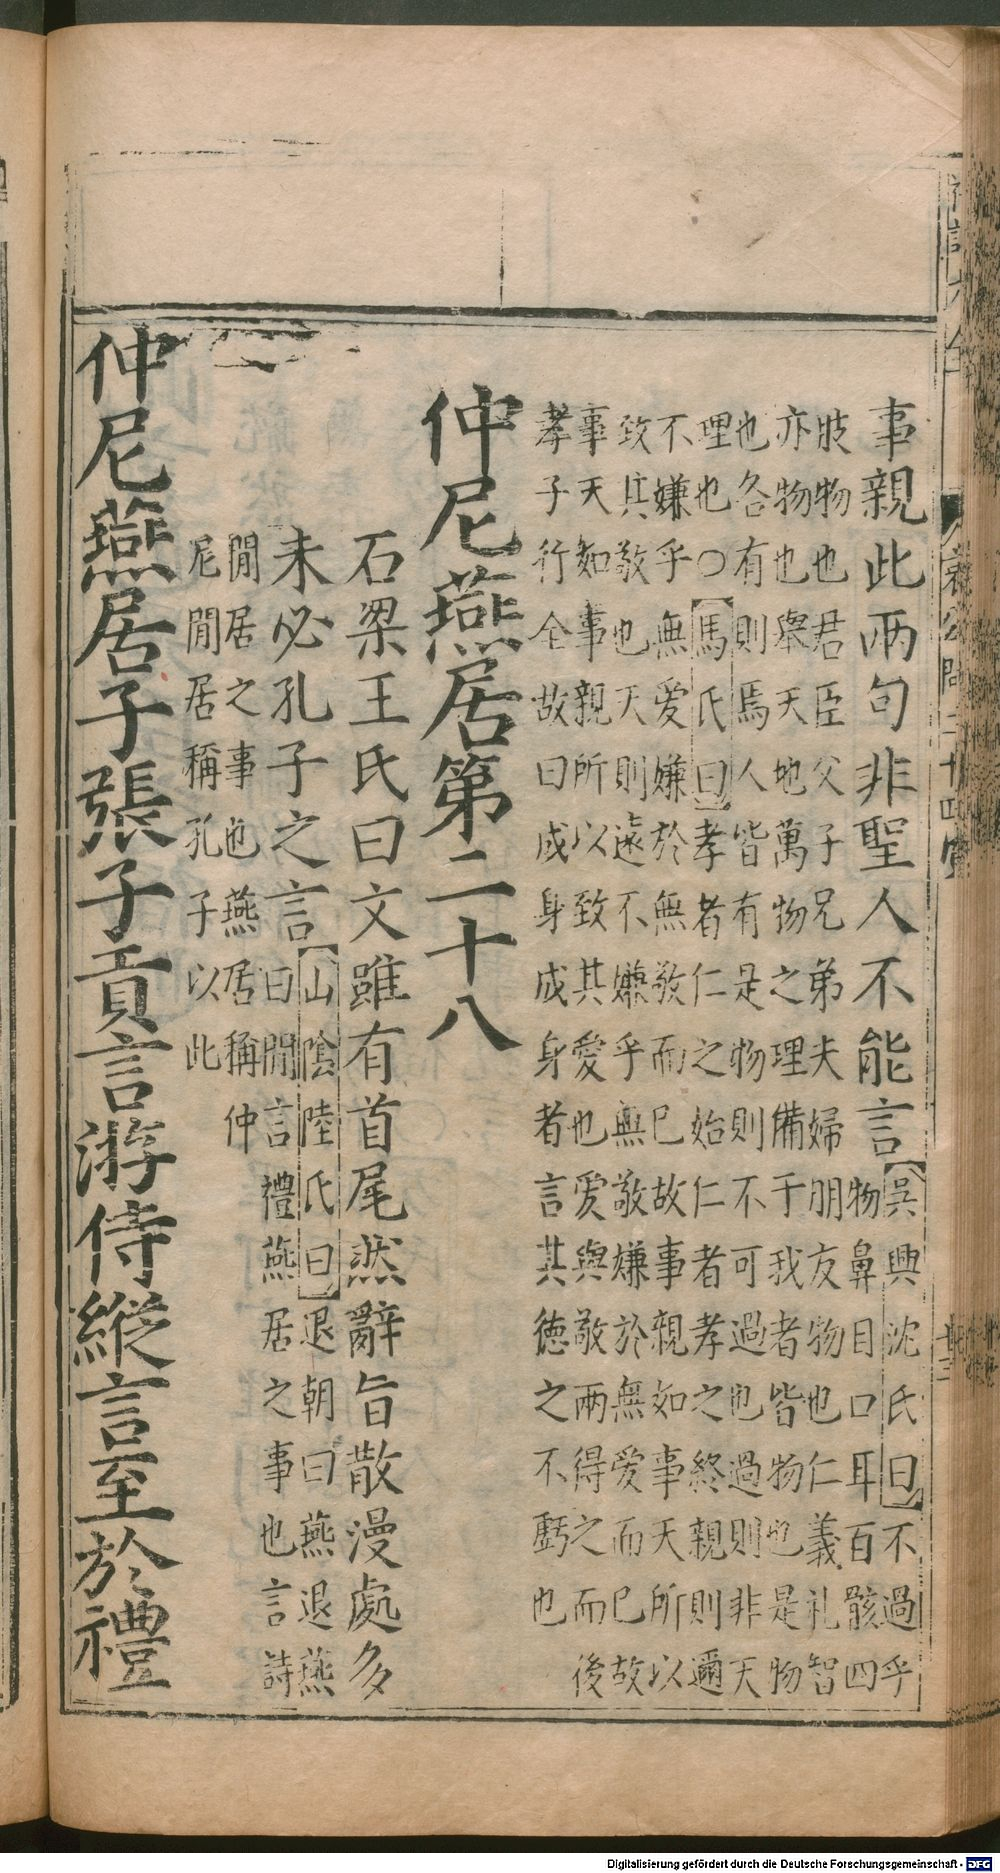 事親此兩句非聖人不能言【吳興沈氏曰】不過乎
物鼻目口耳百骸四
肢物也君臣父子兄弟夫婦朋友物也仁義礼智
亦物也舉天地萬物之理備于我者皆物也是物
也各有則焉人皆有是物則不可過也過則非天
理也○【馬氏曰】孝者仁之始仁者孝之終親則邇
不嫌乎無愛嫌於無敬而已故事親如事天所以
致其敬也天則遠不嫌乎無敬嫌於無爱而已故
事天如事親所以致其愛也愛與敬兩得之而後
孝子行全故曰成身成身者言其德之不虧也
仲尼燕居第二十八
石梁王氏曰文雖有首尾然辭旨散漫處多
未必孔子之言【山陰陸氏曰】退朝曰燕退燕
曰閒言禮燕居之事也言詩
閒居之事也燕居稱仲
尼閒居稱孔子以此
仲尼燕居子張子貢言游侍縱言至於禮
Digitalisierung gefördert durch die Deutsche Forschungsgemeinschaft - DFG